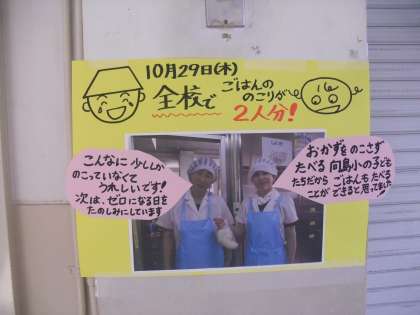 10月29日(木)
全校で
ごはんの
のこりが
2人分!
こんなに少ししか
のこっていなくて
うれしいです!
次は、ゼロになる日を
たのしみにしています
おかずをのこさず
たべる向島小の子ども
たちだから ごはんもたべる
ことができると思ってました!